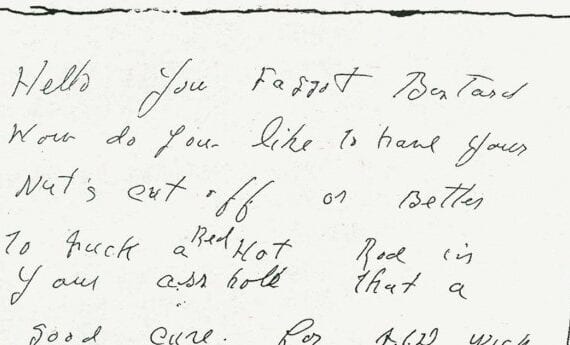 Hello You Faggot Bastard
How do you like to have your
Nut's cut off or Better
To fuck a Red Hot Rod in
Your asshole that a
good cure. for